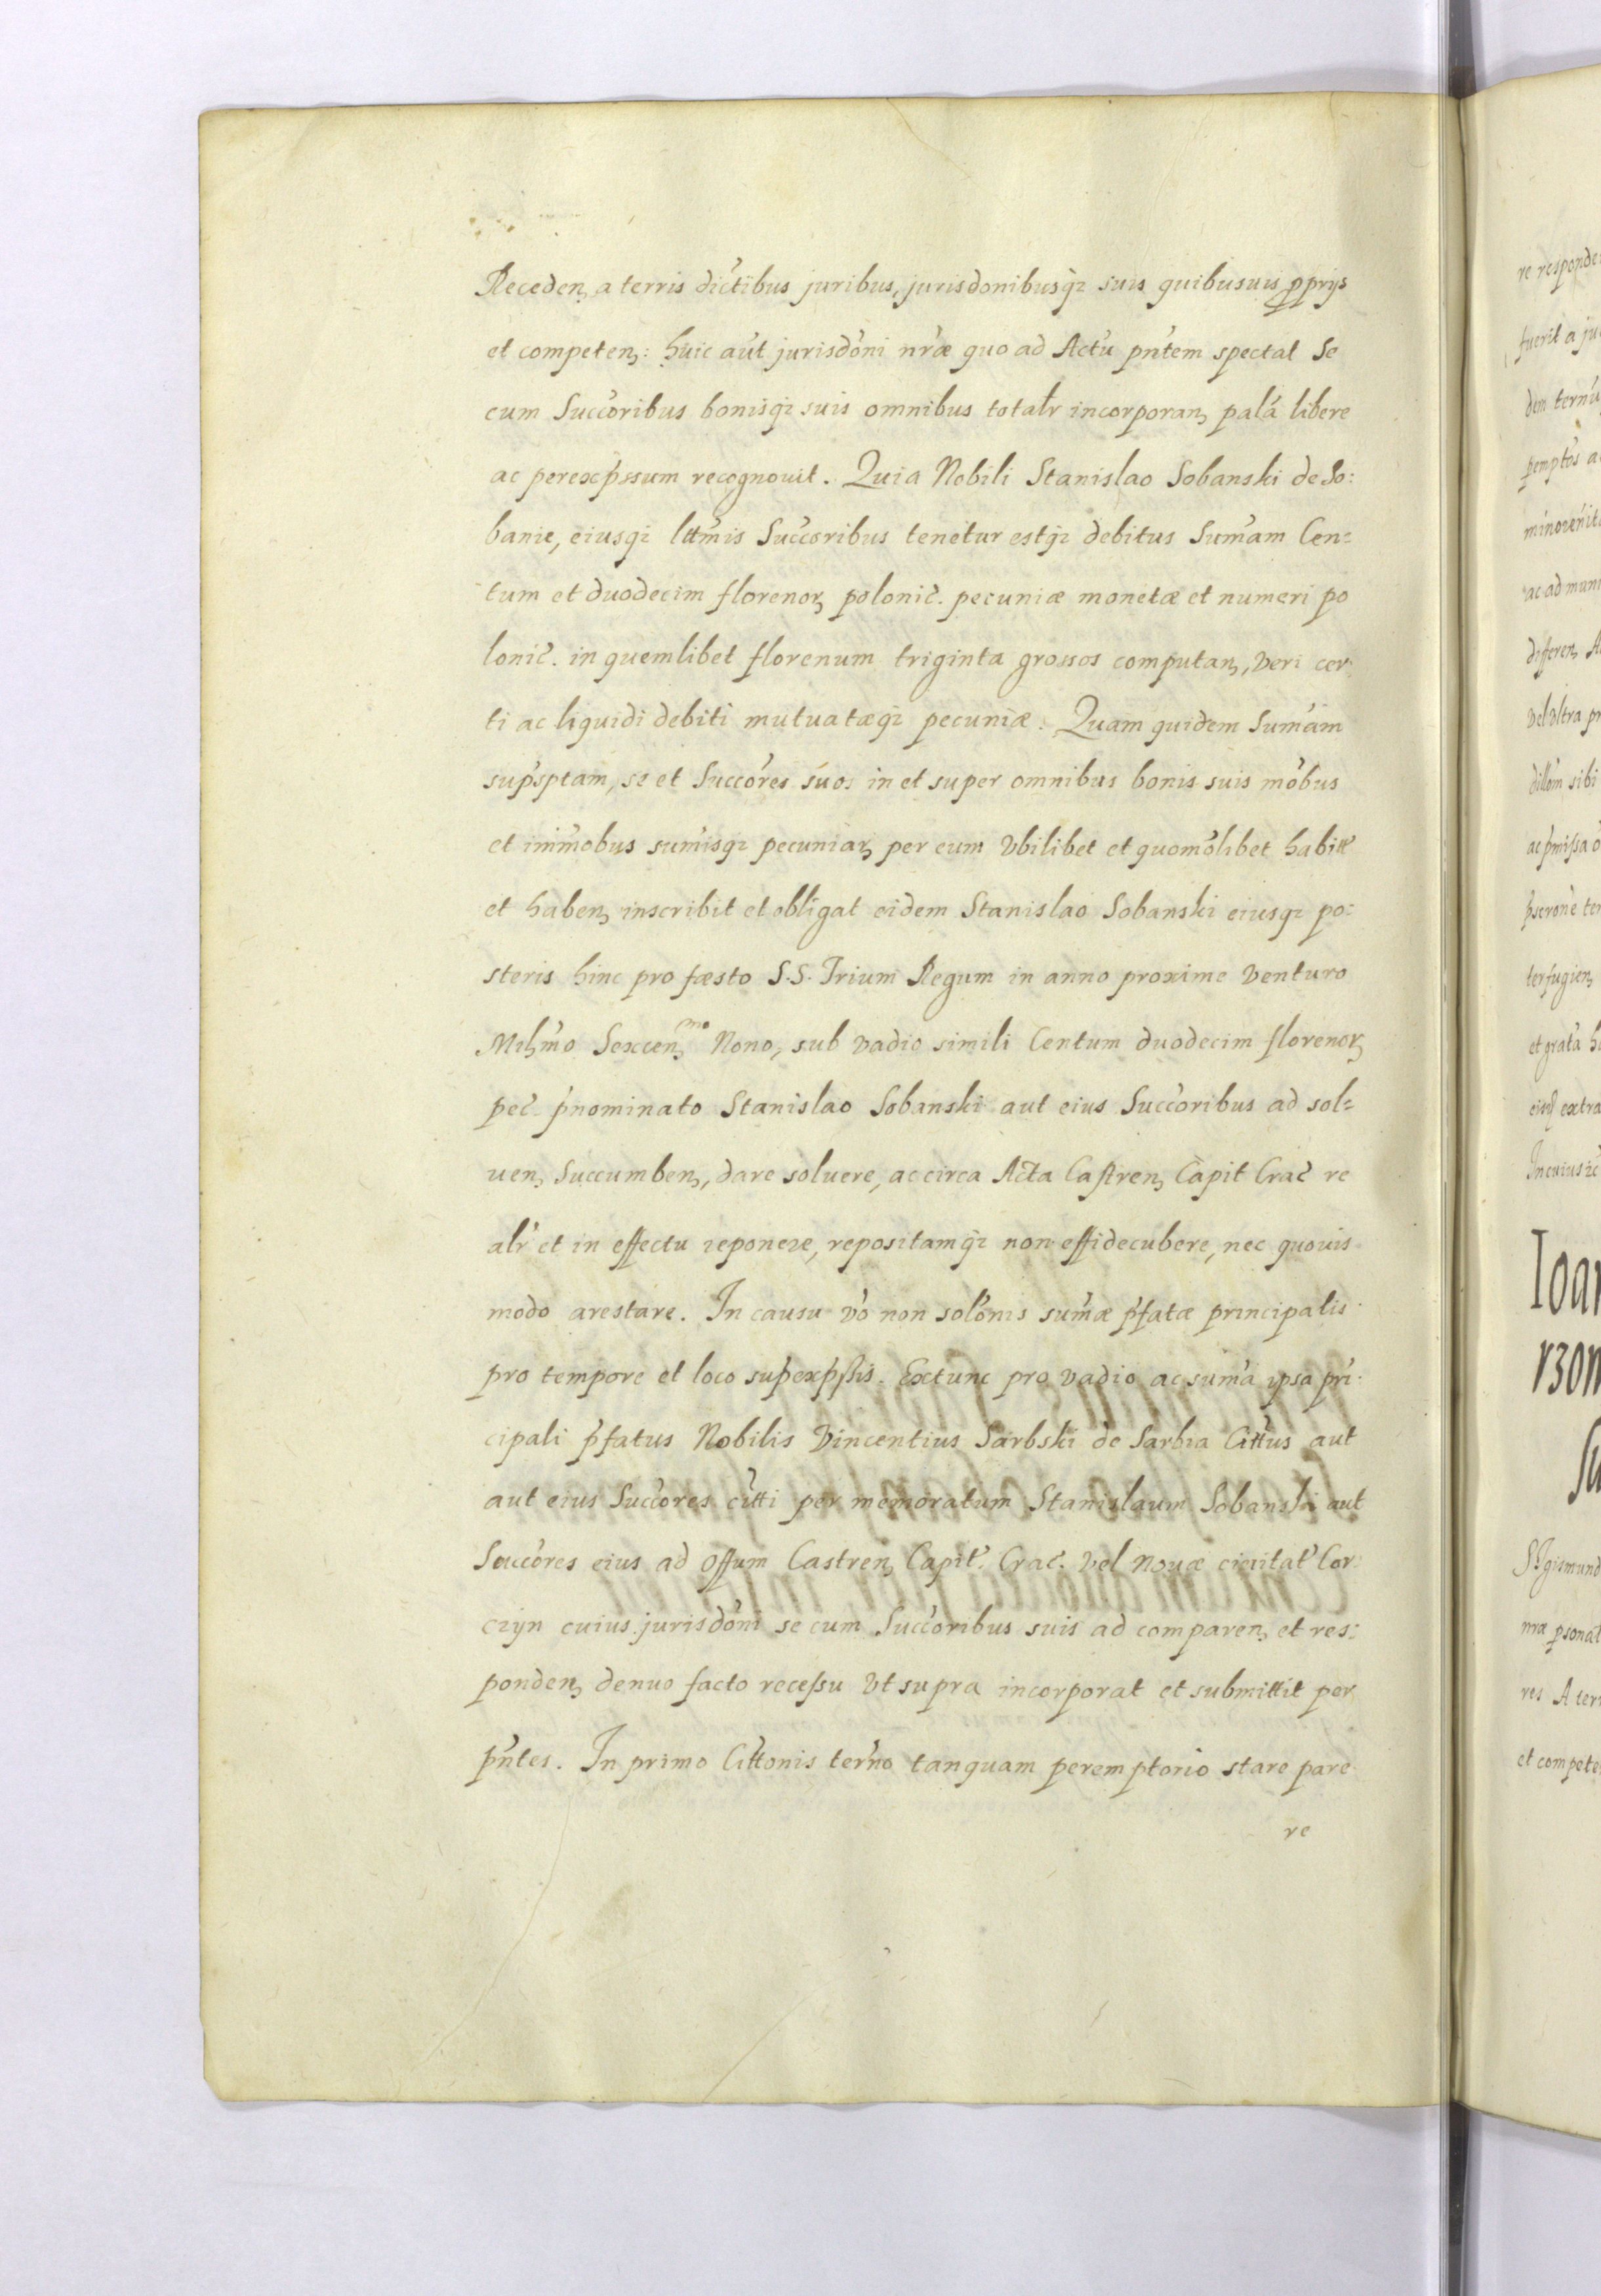 Receden₃ a terris dictibus juribus, jurisdonibusq₃ suis quibusuis ꝓprijs
et competen₃: huic aut jurisdoni nræ quo ad Actu pntem spectat Se
cum Succoribus bonisq₃ suis omnibus totalr incorporan₃ palá libere
ac perexpssum recognouit. Quia Nobili Stanislao Sobanski de So:
banie, eiusq₃ lttmis Succoribus tenetur estq₃ debitus Sumam Cen=
tum et duodecim florenor₃ polonic. pecuniæ monetæ et numeri po
lonic. in quemlibet florenum triginta grossos computan₃, veri cer
ti ac liquidi debiti mutuatæq₃ pecuniæ. Quam quidem Sumam
supsptam, se et Succores suos in et super omnibus bonis suis mobus
et immobus sumisq₃ pecuniar₃ per eum Vbilibet et quomolibet habitt
et haben₃ inscribit et obligat eidem Stanislao Sobanski eiusq₃ po:
steris hinc pro fæsto S.S. Trium Regum in anno proxime venturo
Mil₃mo Sexcen₃ᵐᵒ Nono, sub vadio simili Centum duodecim florenor₃
pec. pnominato Stanislao Sobanski aut eius Succoribus ad sol=
uen₃ Succumben₃, dare soluere, ac circa Acta Castren₃ Capit Crac re
alr et in effectu reponere, repositamq₃ non effidecubere, nec quouis
modo arestare. In causu vo non solonis sumæ pfatæ principalis
pro tempore et loco supexpssis. Extunc pro vadio ac suma ipsa pri
cipali pfatus Nobilis Vincentius Sarbski de Sarbia Cittus aut
aut eius Succores citti per memoratum Stanislaum Sobanski aut
Succores eius ad Offum Castren₃ Capit. Crac. vel Nouæ ciuitat Cor:
czyn cuius jurisdoni se cum Succoribus suis ad comparen₃ et res:
ponden₃ denuo facto recessu Vt supra incorporat et submittit per
pntes. In primo Cittonis terno tanquam peremptorio stare pare
re
re responde
fuerit a ju
dem
ac ad mun
differen₃
vel Vltra
sibi
terfugien₃
et grata
extra
In cuius
Ioan
Sigismund
nræ psonal
res A terr
et compete